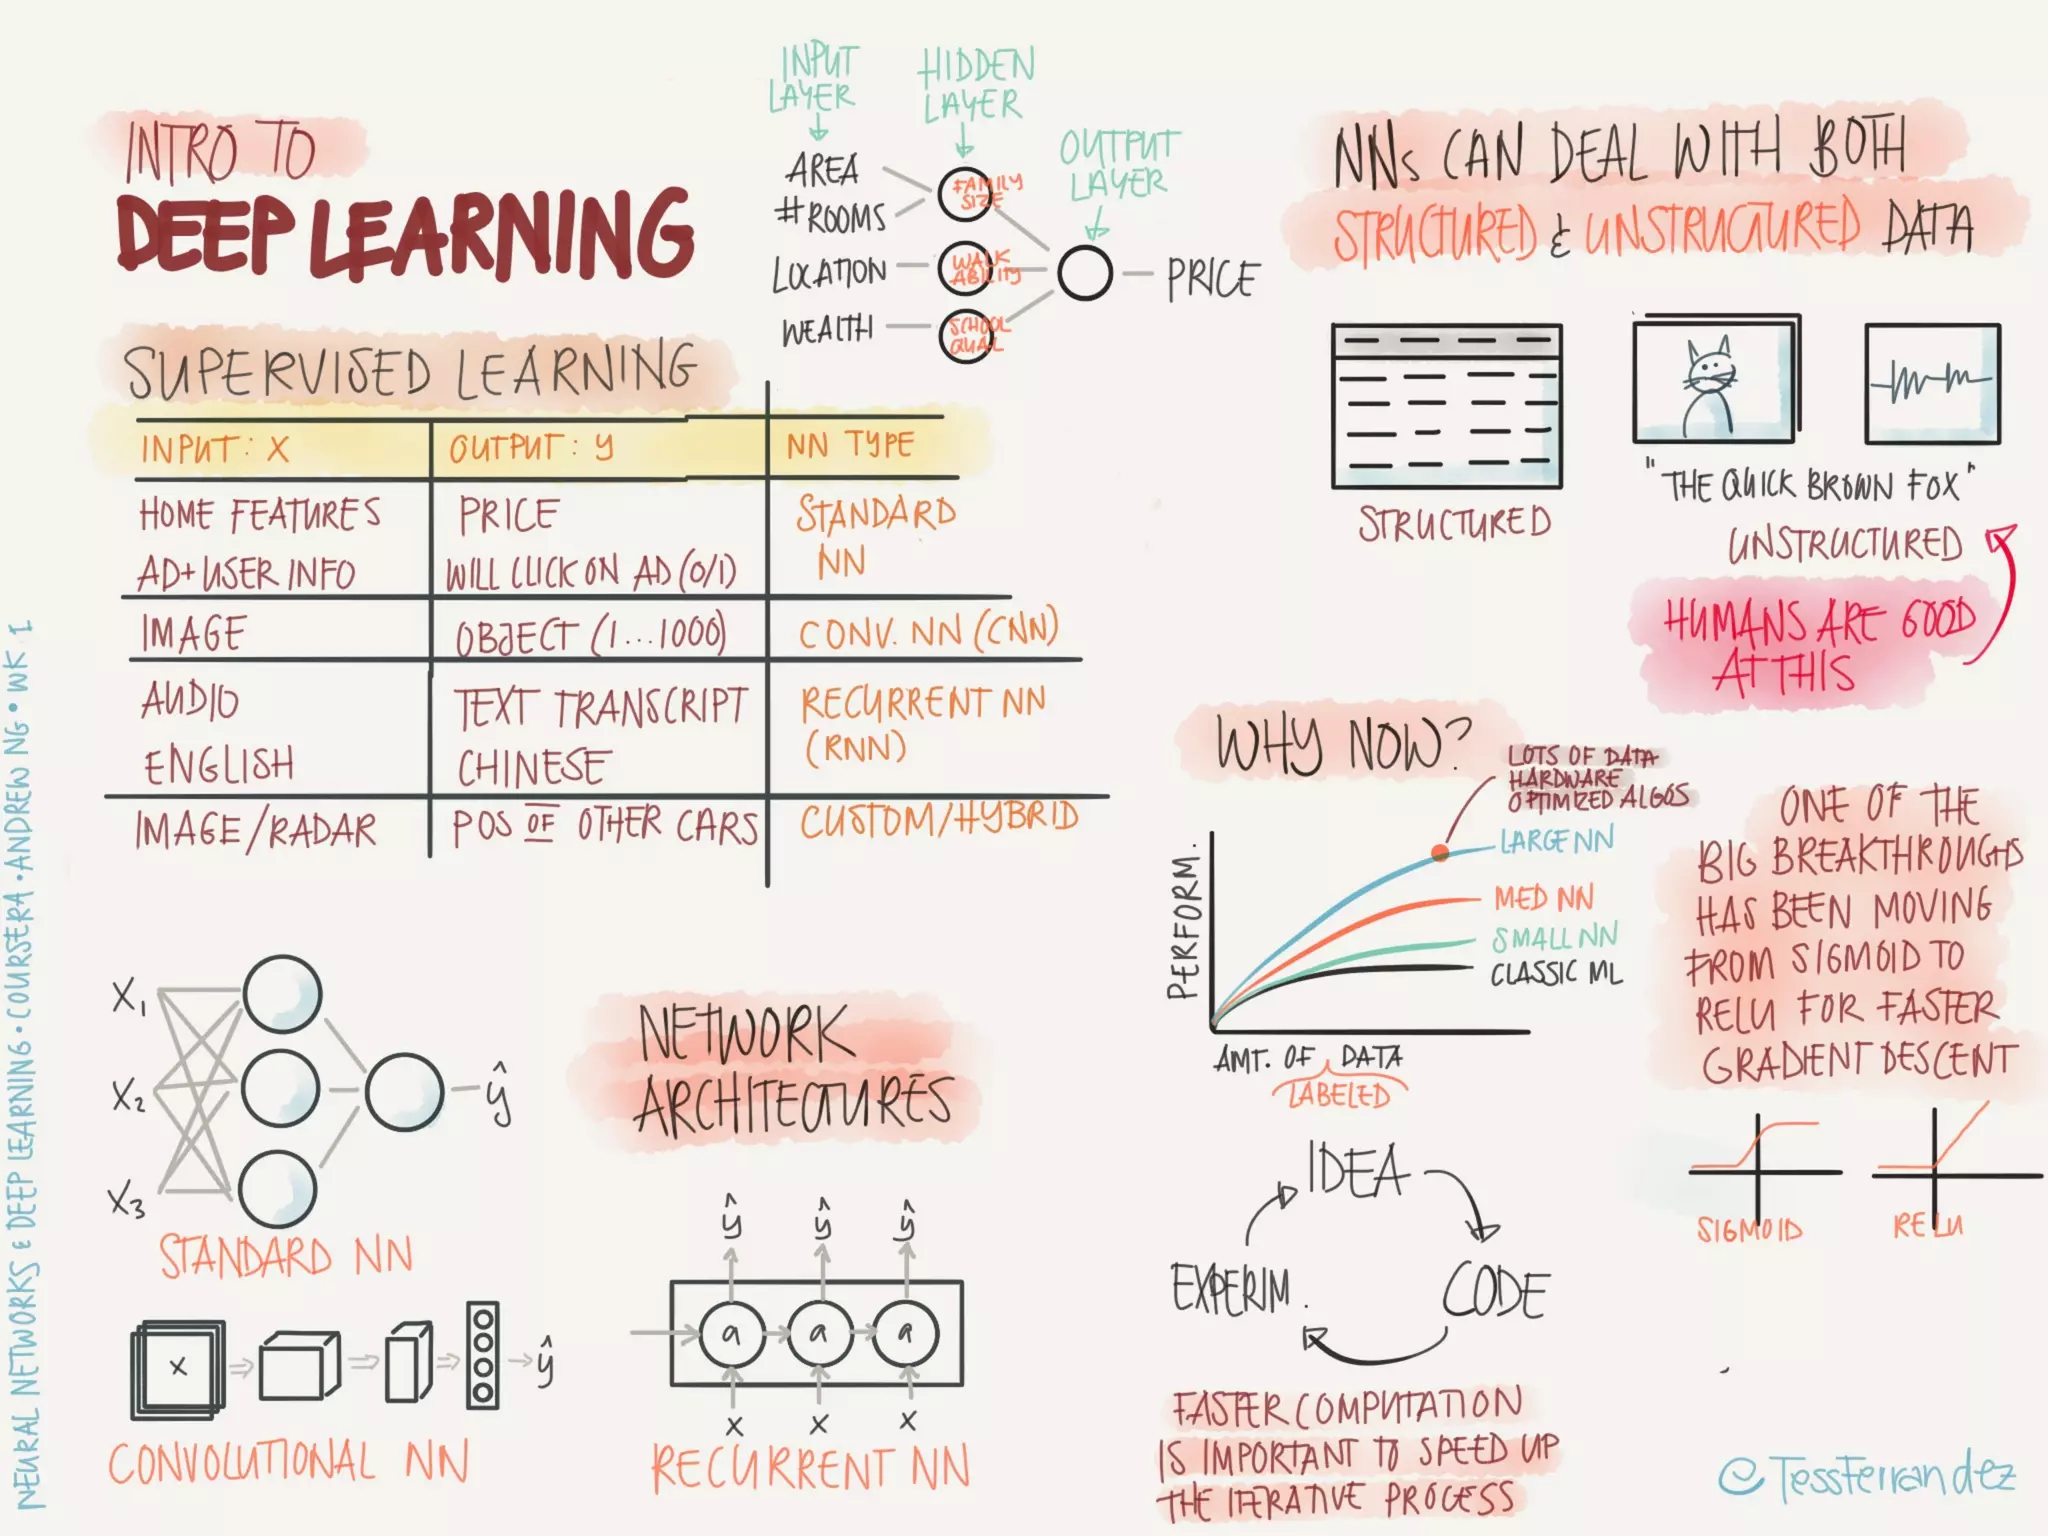 INTRO TO
DEEP LEARNING
INPUT
LAYER
HIDDEN
LAYER
OUTPUT
LAYER
AREA
#ROOMS
LOCATION
WEALTH
FAMILY
SIZE
WALK
ABILITY
SCHOOL
QUAL
PRICE
SUPERVISED LEARNING
INPUT: X OUTPUT: y NN TYPE
HOME FEATURES PRICE STANDARD
AD+USER INFO WILL CLICK ON AD (0/1) NN
IMAGE OBJECT (1...1000) CONV. NN (CNN)
AUDIO TEXT TRANSCRIPT RECURRENT NN
(RNN)
ENGLISH CHINESE
IMAGE/RADAR POS OF OTHER CARS CUSTOM/HYBRID
NNs CAN DEAL WITH BOTH
STRUCTURED & UNSTRUCTURED DATA
STRUCTURED
"THE QUICK BROWN FOX"
UNSTRUCTURED
HUMANS ARE GOOD
AT THIS
WHY NOW?
LOTS OF DATA
HARDWARE
OPTIMIZED ALGOS
LARGE NN
MED NN
SMALL NN
CLASSIC ML
PERFORM.
AMT. OF DATA
LABELED
ONE OF THE
BIG BREAKTHROUGHS
HAS BEEN MOVING
FROM SIGMOID TO
RELU FOR FASTER
GRADIENT DESCENT
SIGMOID
RELU
IDEA
CODE
EXPERIM.
FASTER COMPUTATION
IS IMPORTANT TO SPEED UP
THE ITERATIVE PROCESS
NETWORK
ARCHITECTURES
X1
X2
X3
ŷ
STANDARD NN
X
ŷ
CONVOLUTIONAL NN
ŷ ŷ ŷ
a a a
X X X
RECURRENT NN
NEURAL NETWORKS & DEEP LEARNING • COURSERA • ANDREW NG • WK 1
@TessFerrandez